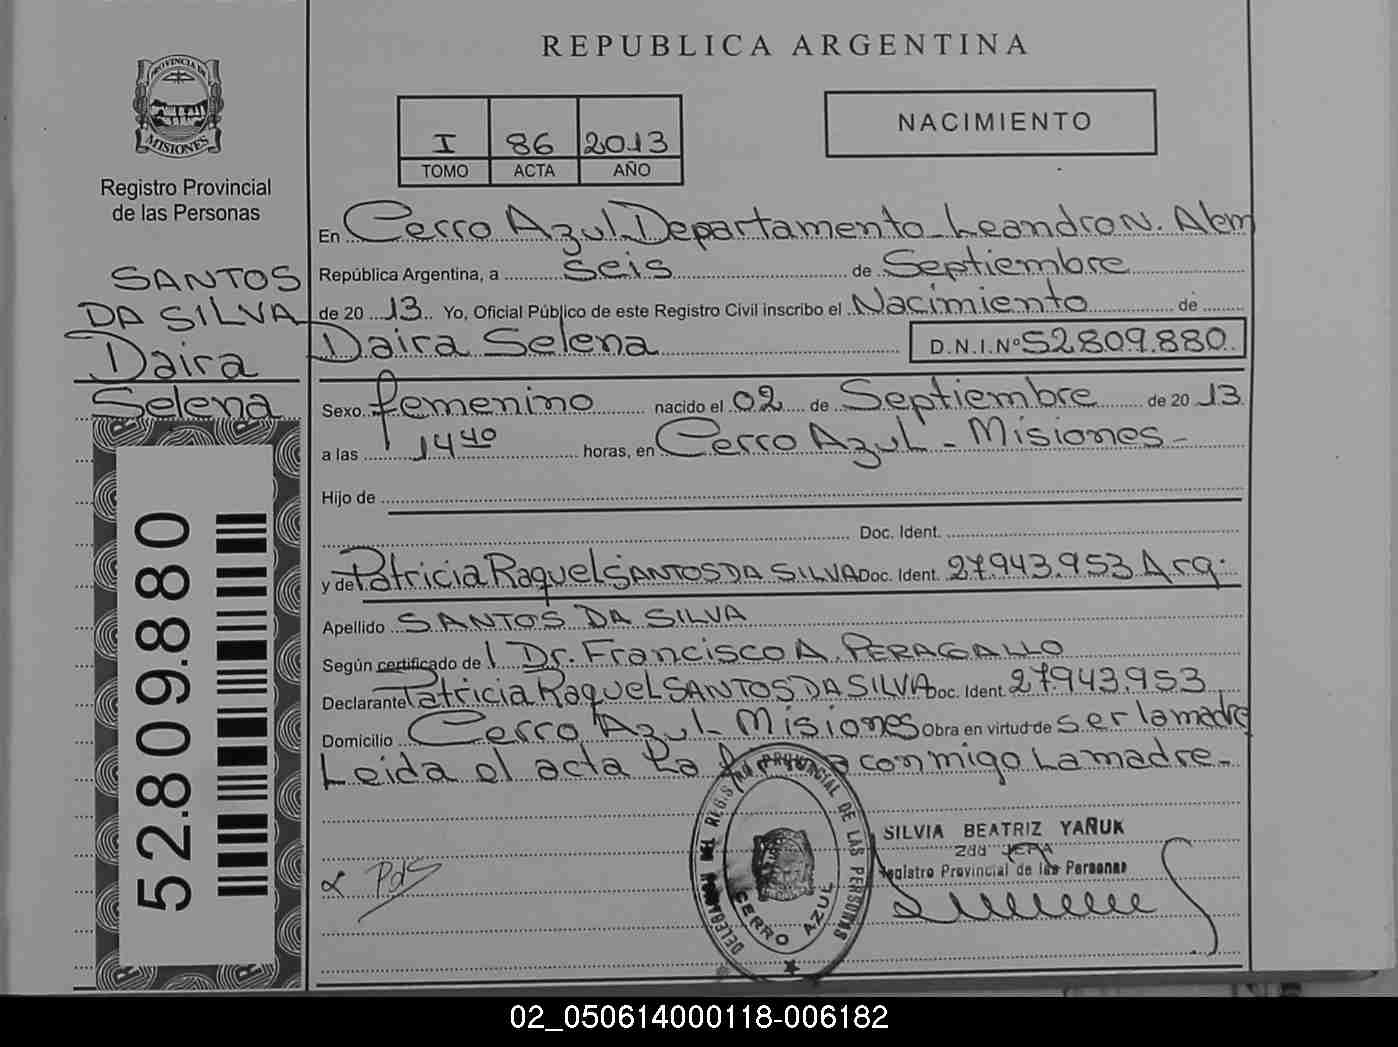 REPUBLICA ARGENTINA
PROVINCIA DE
MISIONES
Registro Provincial
de las Personas
I 86 2013
TOMO ACTA AÑO
NACIMIENTO
SANTOS
DA SILVA
Daira
Selena
52.809.880
En Cerro Azul Departamento Leandro N. Alem
República Argentina, a seis de Septiembre
de 20 13 Yo, Oficial Público de este Registro Civil inscribo el Nacimiento de
Daira Selena D.N.I.Nº 52809.880
Sexo femenino nacido el 02 de Septiembre de 20 13
a las 14 40 horas, en Cerro Azul - Misiones -
Hijo de
Doc. Ident.
y de Patricia Raquel SANTOS DA SILVA Doc. Ident. 27.943.953 Arg.
Apellido SANTOS DA SILVA
Según certificado de l Dr. Francisco A. PERAGALLO
Declarante Patricia Raquel SANTOS DA SILVA Doc. Ident. 27.943.953
Domicilio Cerro Azul - Misiones Obra en virtud de ser la madre
Leida el acta la conmigo La madre -
SILVIA BEATRIZ YAÑUK
2da JEFA
Registro Provincial de las Personas
PdS
REGISTRO PROVINCIAL DE LAS PERSONAS
CERRO AZUL
02_050614000118-006182